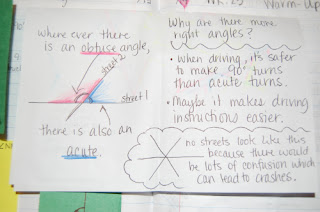 Warm-Up
where ever there
is an obtuse angle,
street 2
street 1
there is also an
acute.
Why are there more
right angles?
• When driving, it's safer
to make 90° turns
than acute turns.
• Maybe it makes driving
instructions easier.
no streets look like this
because there would
be lots of confusion which
can lead to crashes.